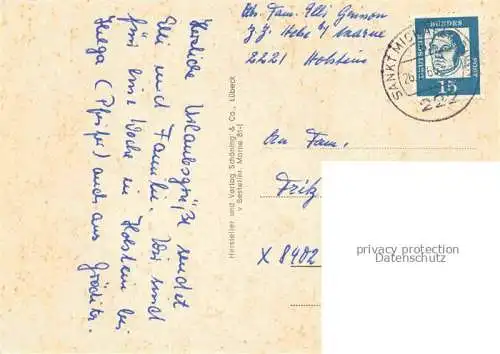 Herzliche Urlaubsgrüße sendet
Elli und Familie. Wir sind
für eine Woche in Holstein bei
Helga (Pfeifer) auch aus Gröditz.
Hersteller und Verlag Schöning & Co., Lübeck
Bestellnr. Marne
Abs. Fam. Elli
z.Z.
2221 Holstein
SANKT MICH
222
DEUTSCHE BUNDESPOST
15
An Fam.
Fritz
X 8402
privacy protection
VEREMOL